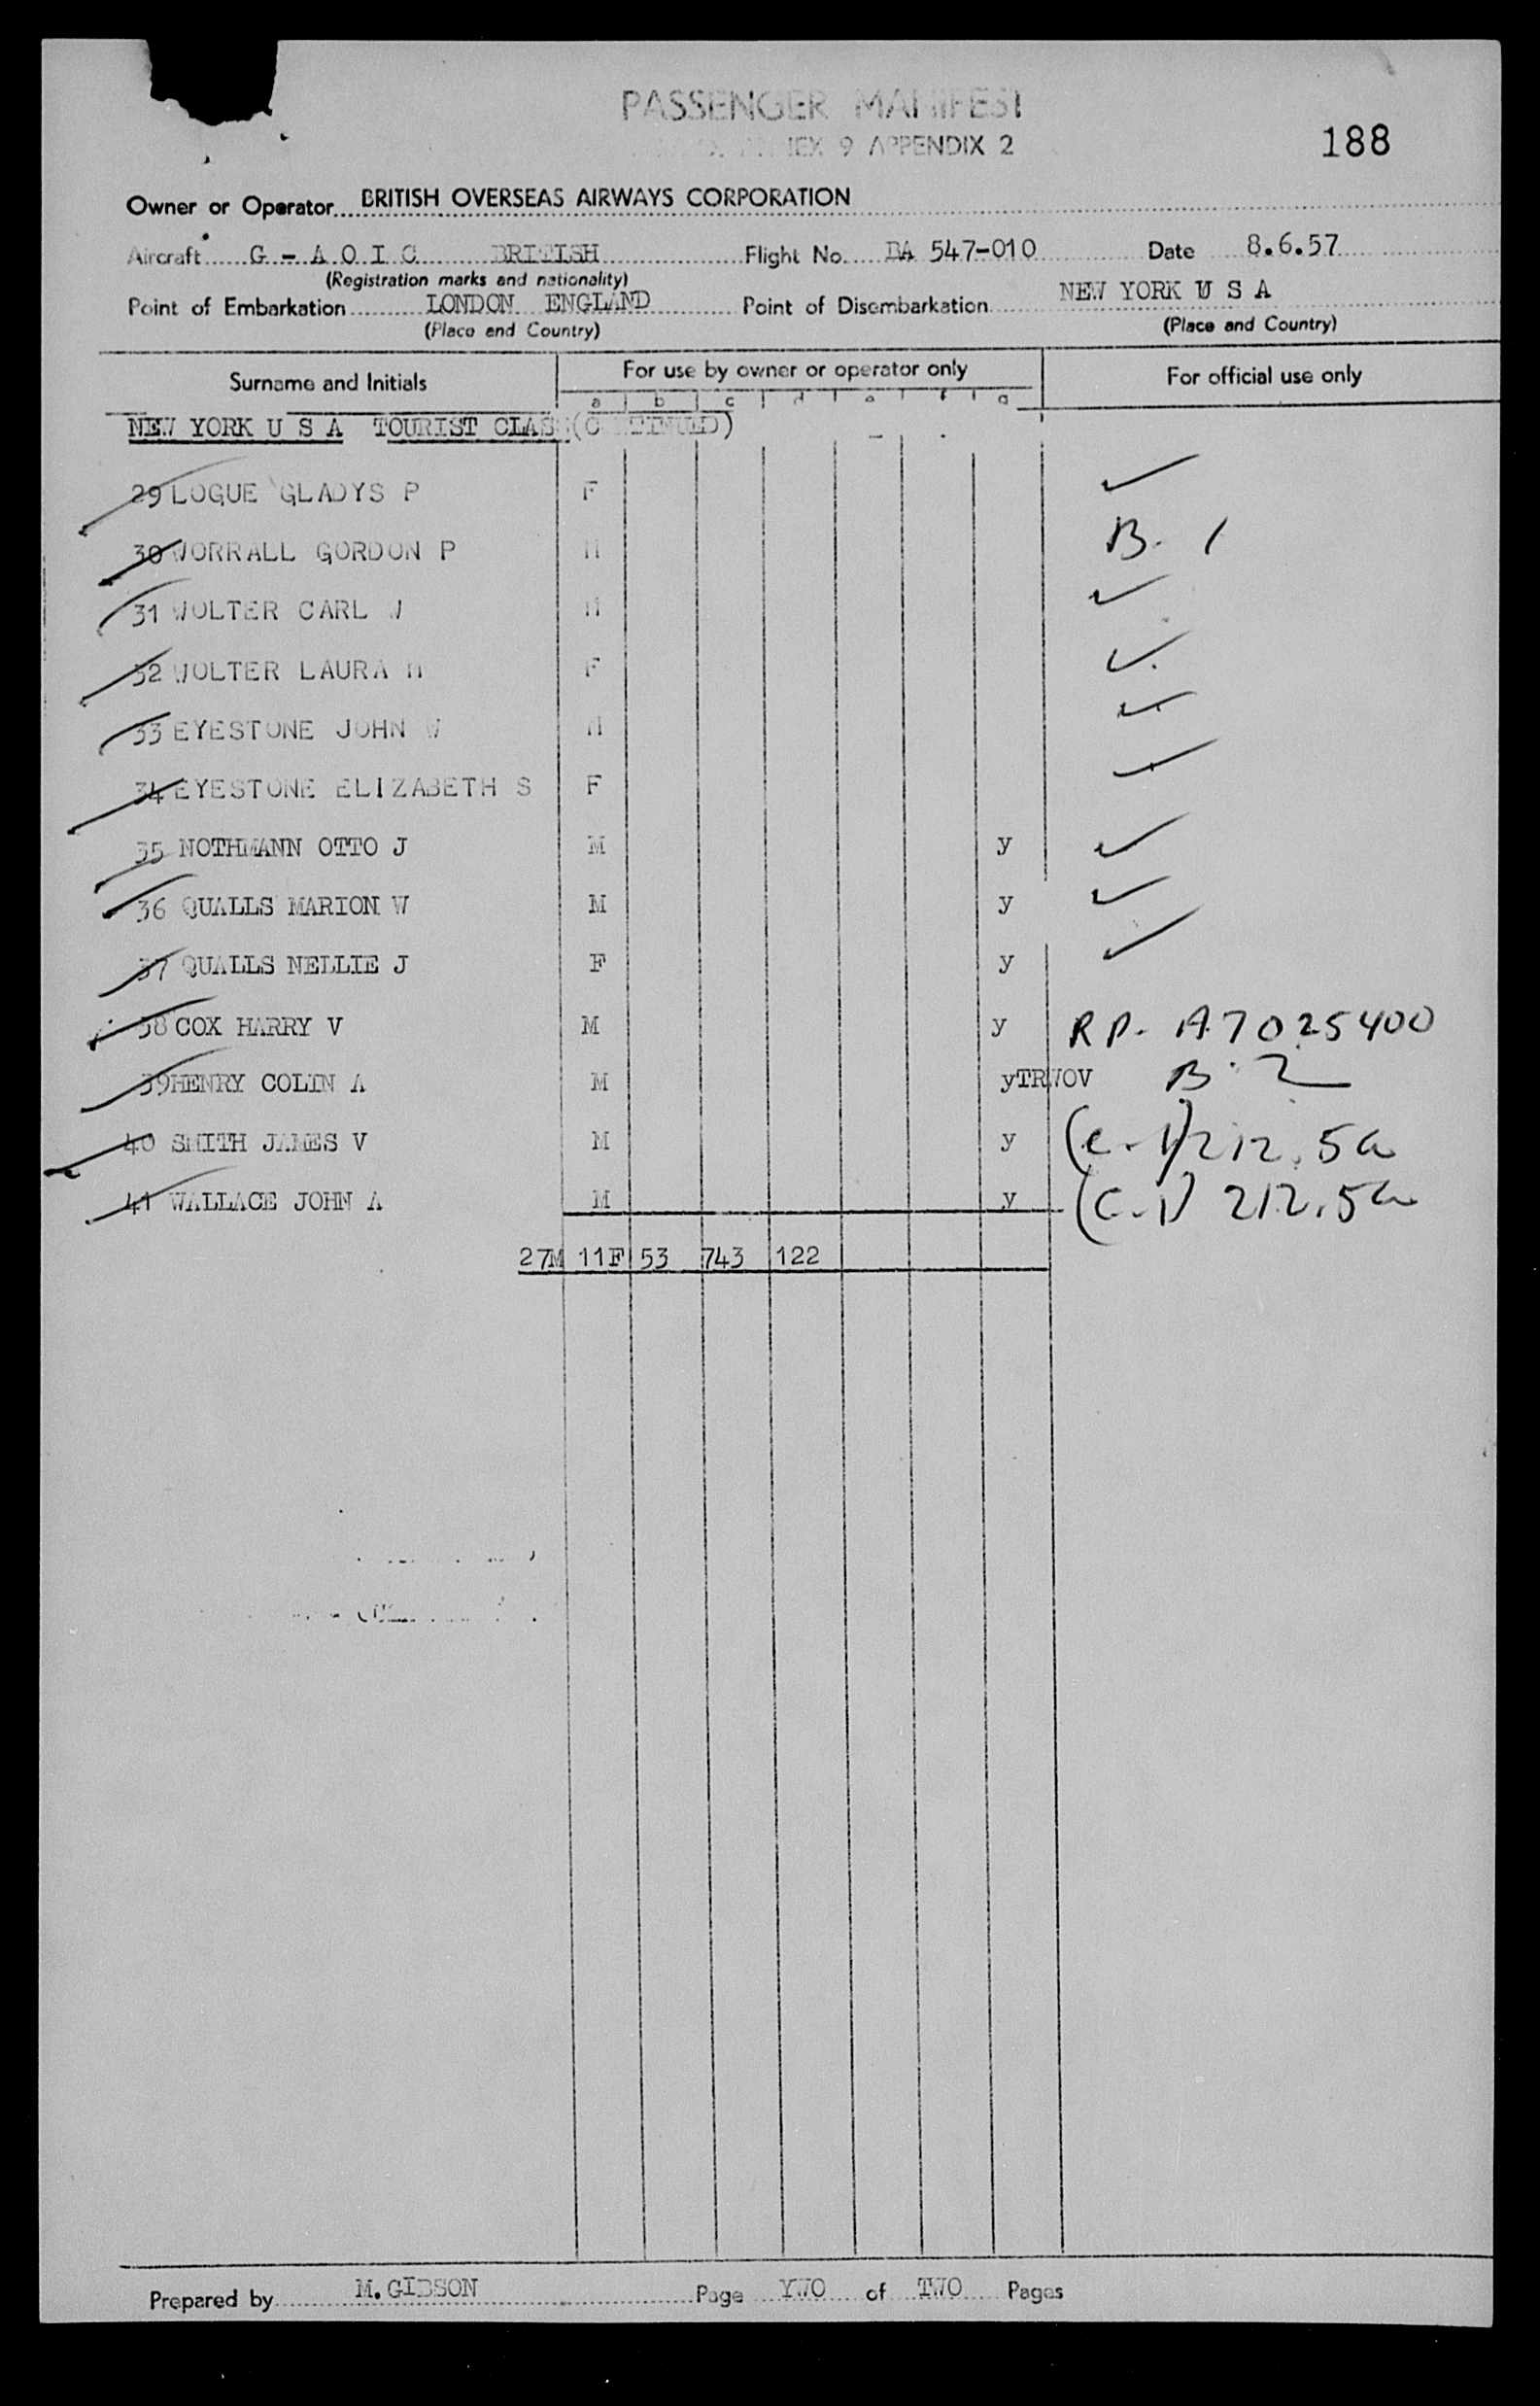 PASSENGER MANIFEST
9 APPENDIX 2
188
Owner or Operator BRITISH OVERSEAS AIRWAYS CORPORATION
Aircraft G - A O I C BRITISH Flight No. BA 547-010 Date 8.6.57
(Registration marks and nationality)
Point of Embarkation LONDON ENGLAND Point of Disembarkation NEW YORK U S A
(Place and Country) (Place and Country)
Surname and Initials For use by owner or operator only For official use only
a b c d e f g
NEW YORK U S A TOURIST CLASS (CONTINUED)
29 LOGUE GLADYS P F ✓
30 WORRALL GORDON P M B. 1
31 WOLTER CARL W M ✓
32 WOLTER LAURA M F ✓
33 EYESTONE JOHN W M ✓
34 EYESTONE ELIZABETH S F ✓
35 NOTHMANN OTTO J M y ✓
36 QUALLS MARION W M y ✓
37 QUALLS NELLIE J F y ✓
38 COX HARRY V M y RP. A7025400
39 HENRY COLIN A M yTRWOV B. 2
40 SMITH JAMES V M y (C-1) 212.5a
41 WALLACE JOHN A M y (C-1) 212.5a
27M 11F 53 743 122
Prepared by M.GIBSON Page YWO of TWO Pages